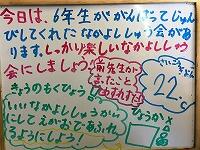 今日は、6年生ががんばってじゅん
びしてくれたなかよししゅう会があ
ります。しっかり楽しいなかよししゅう
会にしましょう。
前先生から
まったこと
わすれずに
さいこうきおん
22.℃
きょうのもくひょう
いいなかよししゅうかい
にしてえがおであふれ
るようにしよう!